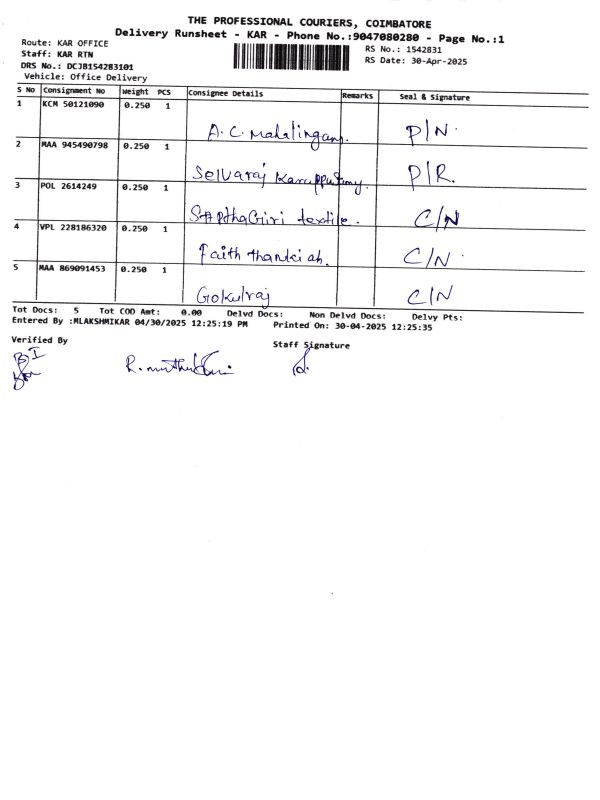 THE PROFESSIONAL COURIERS, COIMBATORE
Delivery Runsheet - KAR - Phone No.:9047080280 - Page No.:1
Route: KAR OFFICE RS No.: 1542831
Staff: KAR RTN RS Date: 30-Apr-2025
DRS No.: DCJB154283101
Vehicle: Office Delivery
S No Consignment No Weight PCS Consignee Details Remarks Seal & Signature
1 KCM 50121090 0.250 1
A.C. Mahalingam. P/N.
2 MAA 945490798 0.250 1
Selvaraj Karuppusamy. P/R.
3 POL 2614249 0.250 1
SAPthaGiri textile. C/N
4 VPL 228186320 0.250 1
Faith thankiah. C/N.
5 MAA 869091453 0.250 1
Gokulraj C/N
Tot Docs: 5 Tot COD Amt: 0.00 Delvd Docs: Non Delvd Docs: Delvy Pts:
Entered By :MLAKSHMIKAR 04/30/2025 12:25:19 PM Printed On: 30-04-2025 12:25:35
Verified By Staff Signature